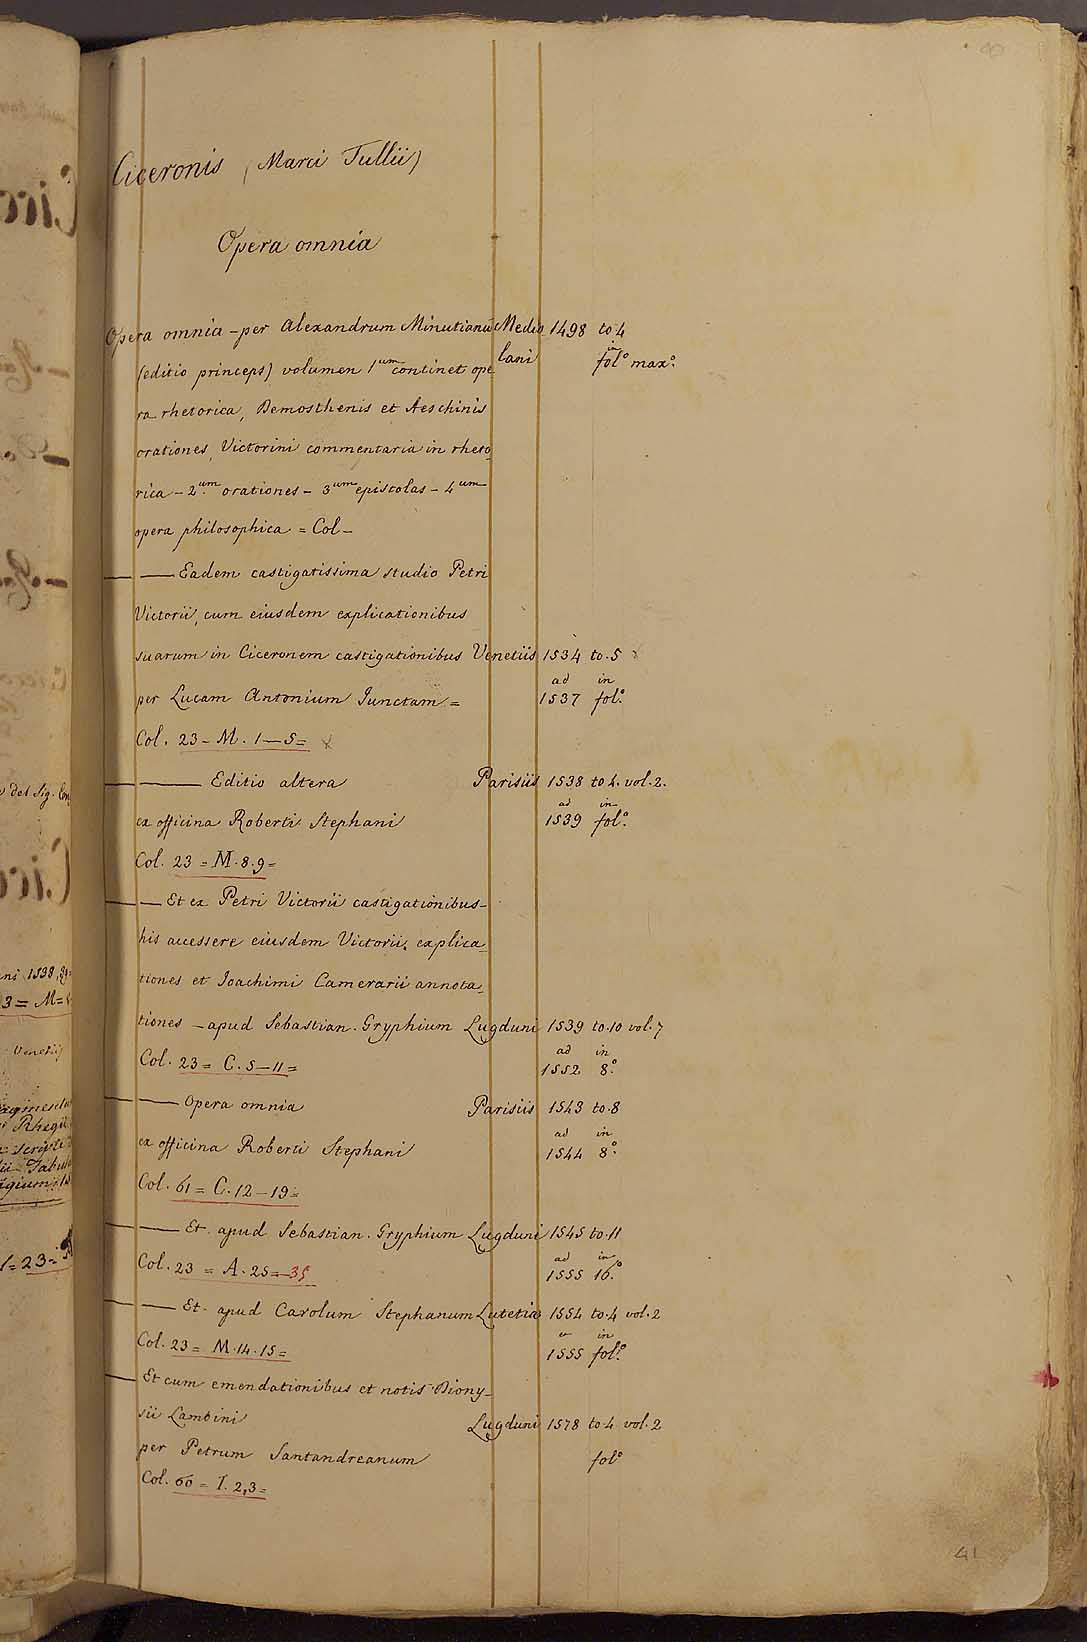 40
Ciceronis (Marci Tullii)
Opera omnia
Opera omnia - per Alexandrum Minutianū Medio 1498 to. 4
(editio princeps) volumen 1um continet ope lani in fol.o max.o
ra rhetorica, Demosthenis et Aeschinis
orationes, Victorini commentaria in rheto_
rica - 2.um orationes - 3um epistolas - 4um
opera philosophica = Col -
— — Eadem castigatissima studio Petri
Victorii, cum eiusdem explicationibus
suarum in Ciceronem castigationibus Venetiis 1534 to. 5
ad in
per Lucam Antonium Junctam = 1537 fol.o
Col. 23 - M. 1 — 5 =
— — Editio altera Parisiis 1538 to 4. vol. 2.
ad in
ex officina Roberti Stephani 1539 fol.o
Col. 23 = M. 8. 9 =
— — Et ex Petri Victorii castigationibus -
his accessere eiusdem Victorii explica_
tiones et Joachimi Camerarii annota_
tiones - apud Sebastian. Gryphium Lugduni 1539 to. 10 vol. 7
ad in
Col. 23 = C. 5 — 11 = 1552 8.o
— — Opera omnia Parisiis 1543 to. 8
ad in
ex officina Roberti Stephani 1544 8.o
Col. 61 = C. 12 — 19 =
— — Et apud Sebastian. Gryphium Lugduni 1545 to. 11
ad in
Col. 23 = A. 25 = — 35 1555 16.o
— — Et apud Carolum Stephanum Lutetiae 1554 to. 4 vol. 2
et in
Col. 23 = M. 14. 15 = 1555 fol.o
— Et cum emendationibus et notis Diony_
sii Lambini Lugduni 1578 to. 4 vol. 2
per Petrum Santandreanum fol.o
Col. 60 = I. 2, 3 =
41